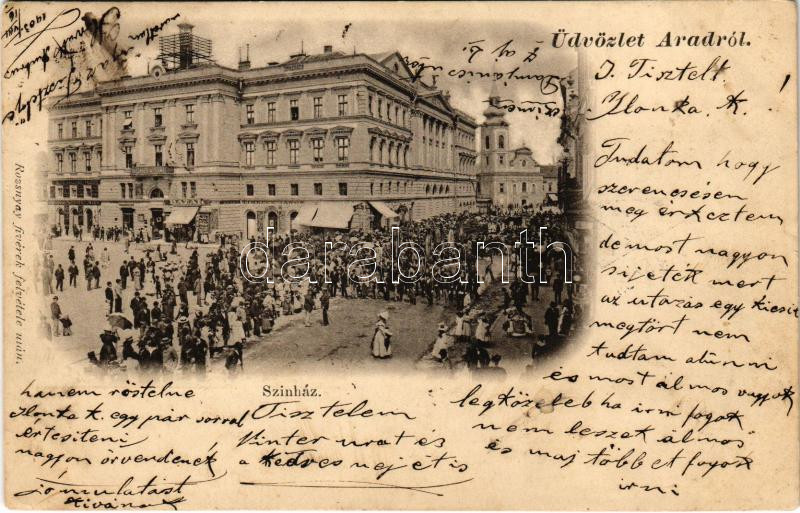 Üdvözlet Aradról.
T. Tisztelt
Ilonka k. !
Tudatom hogy
szerencsésen
meg érkeztem
de most nagyon
sijeték mert
az utazás egy kicsit
megtört nem
tudtam alunni
és most álmos vagyok
legközeleb ha irni fogok
nem leszek álmos
és maj többet fogok
irni
Tisztelem
Vinter urat és
a kedves nejét is
hanem röstelne
Ilonka k. egy pár sorral
értesiteni
nagyon örvendenék
jó mulatást
kivánok
Szinház.
Rozsnyay fivérek felvétele után.
darabanth